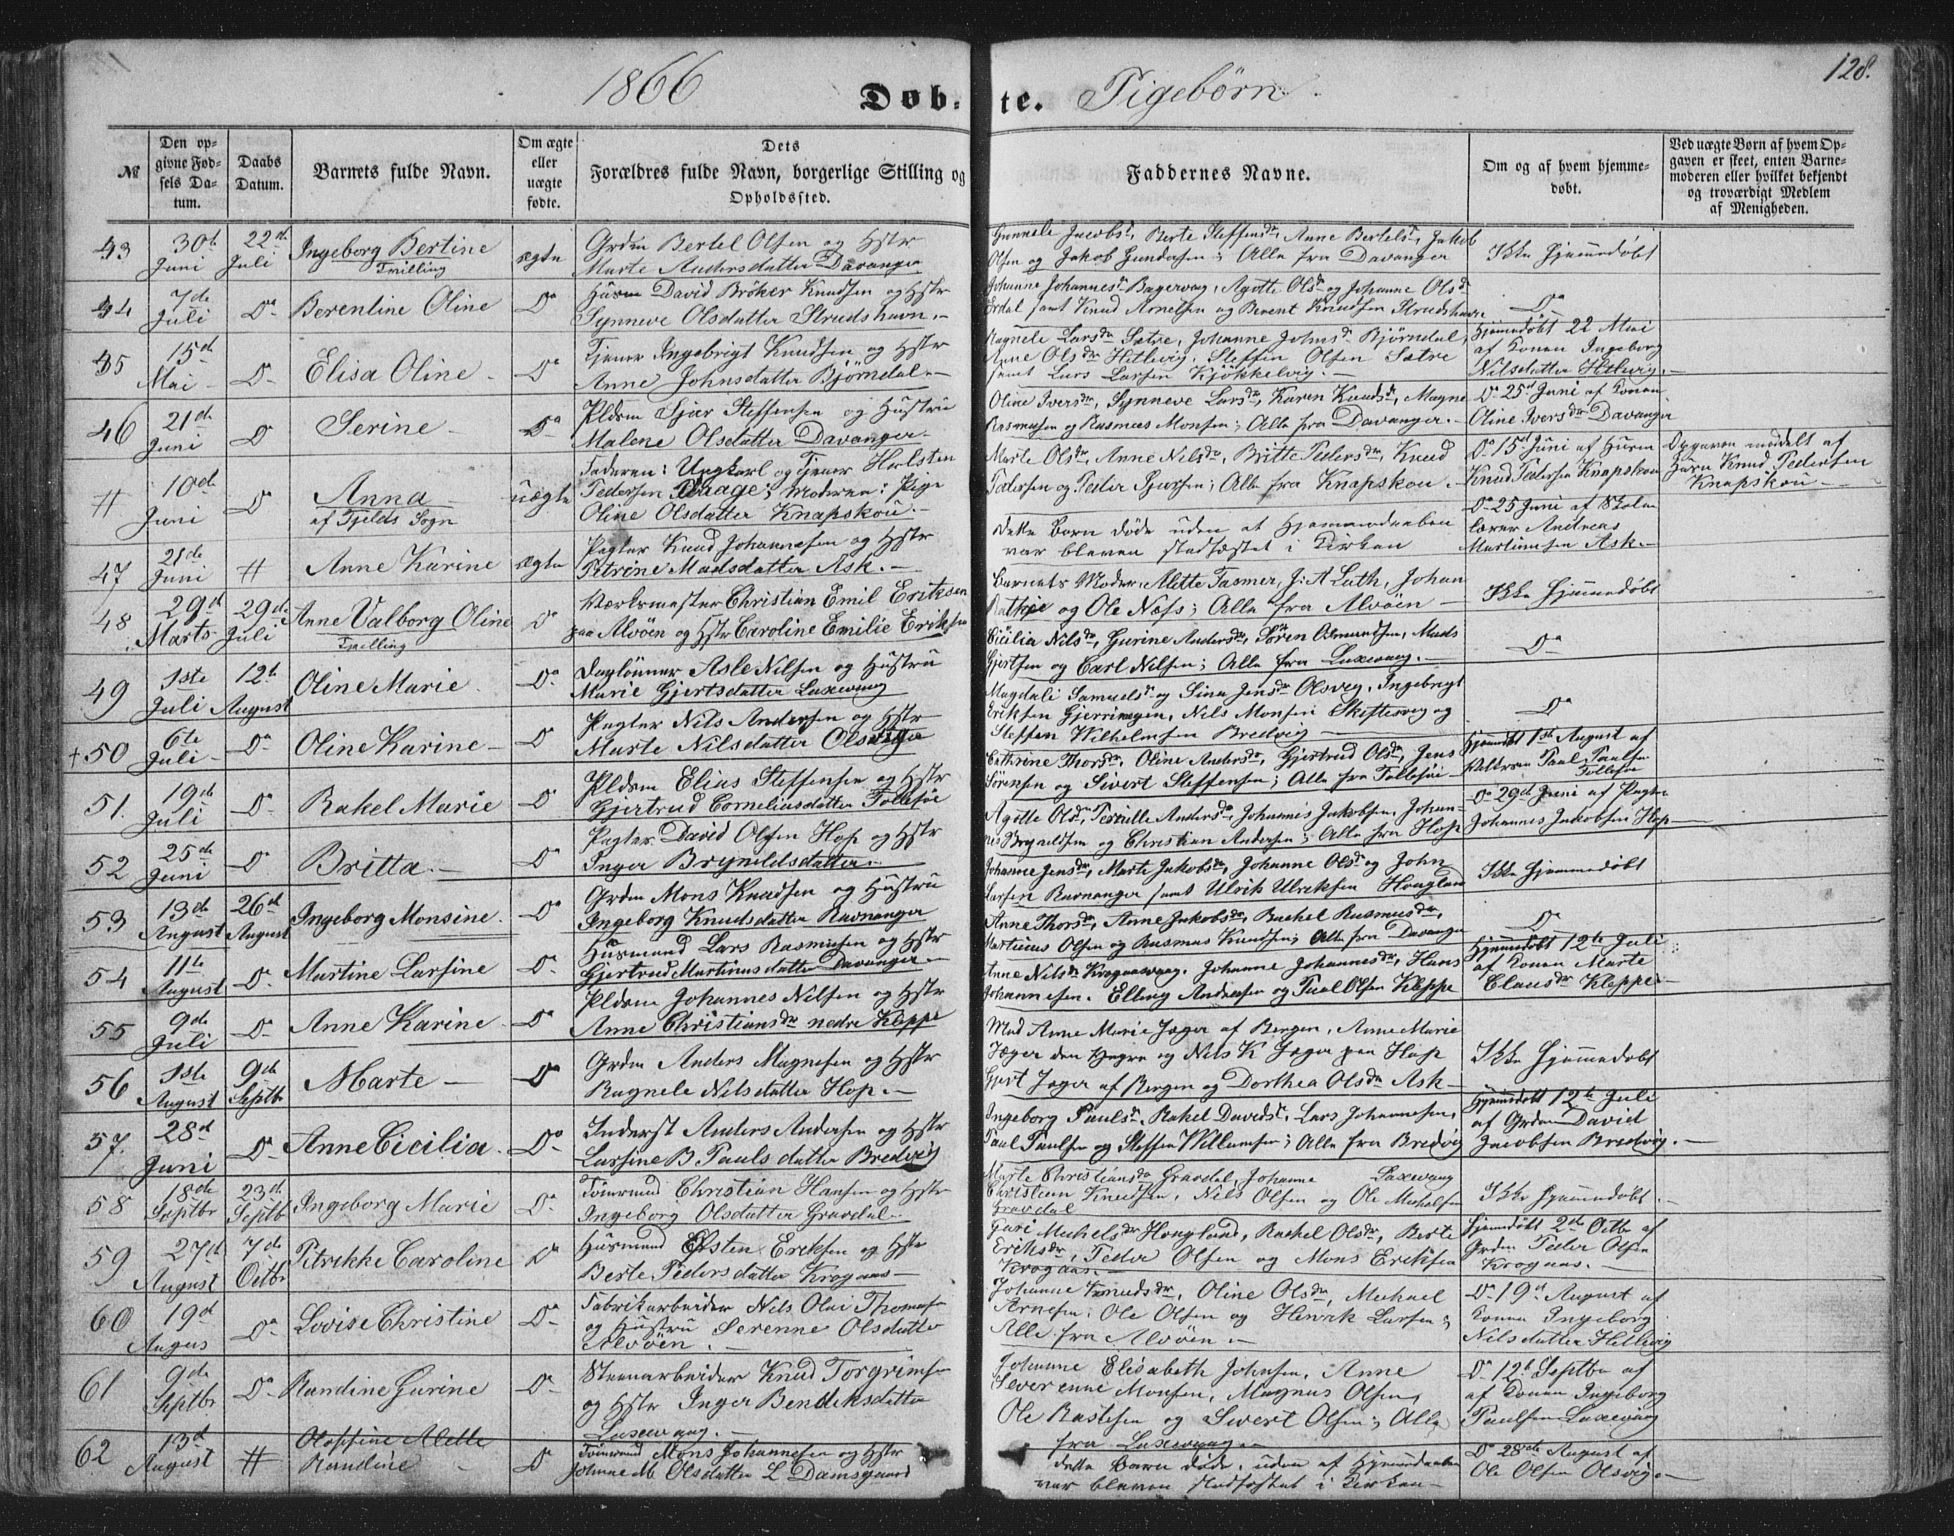 1866 Døb- te. Pigebørn. 128.
№
Den opgivne Fødsels Datum.
Daabs Datum.
Barnets fulde Navn.
Om ægte eller uægte fødte.
Dets Forældres fulde Navn, borgerlige Stilling og Opholdssted.
Faddernes Navne.
Om og af hvem hjemmedøbt.
Ved uægte Børn af hvem Opgaven er skeet, enten Barnemoderen eller hvilket bekjendt og troværdigt Medlem af Menigheden.
43 30te Juni 22de Juli Ingeborg Bertine ægte Grdm Bertel Olsen og Hstr
Tvilling Marte Andersdatter Davanger
Gunnele Jacobsdr, Berte Steffensdr, Anne Bertelsdr, Jakob
Olsen og Jakob Gundersen; Alle fra Davanger Ikke Hjemmedøbt
44 7de Juli Do Berentine Oline Do Husm David Brøker Knudsen og Hstr
Synneve Olsdatter Strudshavn.
Johanne Johannesdr Bagervaag, Agotte Olsdr og Johanne Olsdr
Erdal samt Knud Arnesen og Berent Knudsen Strudshavn Do
45 15de Mai Do Elisa Oline Do Tjener Ingebrigt Knudsen og Hstr
Anne Johnsdatter Bjørndal
Ragnele Larsdr Sætre, Johanne Johnsdr Bjørndal,
Anne Olsdr Hetlevig, Steffen Olsen Sætre
samt Lars Larsen Kjøkkelvig.
Hjemmedøbt 22 Mai
af Konen Ingeborg
Nilsdatter Hetlevig.
46 21de Juni Do Serine Do Pldsm Sjur Steffensen og Hustru
Malene Olsdatter Davanger
Oline Iversdr, Synneve Larsdr, Karen Knudsdr, Magne
Rasmussen og Rasmus Monsen; Alle fra Davanger.
Do 25de Juni af Konen
Oline Iversdr Davanger
# 10de Juni Do Anna uægte Faderen: Ungkarl og Tjener Holsten
af Fjelds Sogn Pedersen Raage; Moderen: Pige
Oline Olsdatter Knapskou.
Marte Olsdr, Anne Nilsdr, Britte Pedersdr, Knud
Pedersen og Peder Sjursen; Alle fra Knapskou.
Do 15de Juni af Husm
Knud Pedersen Knapskou
Opgaven meddelt af
Husm Knud Pedersen
Knapskou
47 21de Juni # Anne Karine ægte Pagter Knud Johannesen og Hstr
Petrine Madsdatter Ask.
Dette Barn døde uden at Hjemmedaaben
var bleven stadfæstet i Kirken
Do 25 Juni af Skole
lærer Andreas
Martinusen Ask.
48 29de Marts 29de Juli Anne Valborg Oline Do Værksmester Christian Emil Eriksen
Tvilling paa Alvøen og Hstr Caroline Emilie Eriksen
Barnets Moder, Alette Fasmer, J: A Luth, Johan
Rathje og Ole Næss; Alle fra Alvøen Ikke Hjemmedøbt
49 1ste Juli 12te August Oline Marie Do Daglønner Asle Nilsen og Hustru
Marie Gjertsdatter Laxevaag
Cicilia Nilsdr, Gurine Andersdr, Søren Osmundsen, Mads
Gjertsen og Carl Nilsen; Alle fra Laxevaag. Do
50 6te Juli Do Oline Karine Do Pagter Nils Andersen og Hstr
Marte Nilsdatter Olsvig
Magdali Samuelsdr og Sina Jensdr Olsvig, Ingebrigt
Eriksen Gjerringen, Nils Monsen Skiftesvig og
Steffen Wilhelmsen Bredvig Do
51. 19de Juli Do Rakel Marie Do Pldsm Elias Steffensen og Hstr
Gjertrud Corneliusdatter Follesøe
Cathrine Thorsdr, Oline Andersdr, Gjertrud Olsdr, Jens
Sørensen og Sivert Steffensen; Alle fra Follesøe
Hjemmedøbt 1ste August af
Paul Paulsen
Follesøe
52 25de Juni Do Britta. Do Pagter David Olsen Hop og Hstr
Inger Brynildsdatter
Agotte Olsdr, Pernille Andersdr, Johannes Jakobsen, Johan-
nes Brynildsen og Christian Andersen; Alle fra Hop
Do 29de Juni af Pagter
Johannes Jakobsen Hop
53 13de August 26de August Ingeborg Monsine Do Grdm Mons Knudsen og Hustru
Ingeborg Knudsdatter Ravnanger
Johanne Jensdr, Marte Jakobsdr, Johanne Olsdr og John
Larsen Ravnanger samt Ulrik Ulriksen Hougland Ikke Hjemmedøbt
54 11te August Do Martine Larsine Do Husmand Lars Rasmusen og Hstr
Gjertrud Martinusdatter Davanger
Anne Thorsdr, Anne Jakobsdr, Rachel Rasmusdr,
Martinus Olsen og Rasmus Knudsen; Alle fra Davanger Do
55 9de Juli Do Anne Karine Do Pldsm Johannes Nilsen og Hstr
Anne Christiansdr nedre Kleppe
Anne Nilsdr Krogaasvaag. Johanne Johannesdr, Hans
Johannesen. Elling Andersen og Paul Olsen Kleppe
Hjemmedøbt 12te Juli
af Konen Marte
Clausdr Kleppe
56 1ste August 9de Septbr Marte Do Grdm Anders Magnesen og Hstr
Ragnele Nilsdatter Hop.
Mad Anne Marie Jæger af Bergen, Anne Marie
Jæger den Yngre og Nils K Jæger paa Hop
Gjert Jæger af Bergen og Dorthea Olsdr Ask Ikke Hjemmedøbt
57. 28de Juni Do Anne Cicilia. Do Inderst Anders Andersen og Hstr
Larsine B. Paulsdatter Bredvig
Ingeborg Paulsdr. Rakel Davidsdr. Lars Johannesen,
Paul Paulsen og Steffen Willumsen; Alle fra Bredvig
Hjemmedøbt 12te Juli
af Grdm David
Jacobsen Bredvig.
58 18de Septbr 23de Septbr Ingeborg Marie Do Tømrmnd Christian Hansen og Hstr
Ingeborg Olsdatter Gravdal.
Marte Christiansdr Gravdal, Johanne Laxevaag
Christian Knudsen, Nils Olsen og Ole Michelsen
Gravdal Ikke Hjemmedøbt.
59 27de August 7de Octbr Petrikke Caroline Do Husmand Østen Eriksen og Hstr
Berte Pedersdatter Krogaas
Guri Michelsdr Hougland, Rachel Olsdr, Berte
Eriksdr, Peder Olsen og Mons Eriksen
Krogaas.
Hjemmedøbt 2de Octbr af
Grdm Peder Olsen
Krogaas.
60 19de Augus Do Lovise Christine Do Fabrikarbeider Nils Olai Thomas
og Hustru Serenne Olsdatter
Alvøen.
Johanne Knudsdr, Oline Olsdr, Michael
Arnesen, Ole Olsen og Henrik Larsen;
Alle fra Alvøen.
Do 19de August af
Konen Ingeborg
Nilsdatter Hetlevig
61 9de Septbr Do Randine Gurine Do Steenarbeider Knud Torgrimsen
og Hstr Inger Bendiksdatter
Laxevaag.
Johanne Elisabeth Johnsen, Anne
Severenne Monsen, Magnus Olsen,
Ole Rastesen og Sivert Olsen; Alle
fra Laxevaag.
Do 12te Septbr af
af Konen Ingeborg
Paulsen Laxevaag
62 13de August # Olostine Alette
Randine Do Tømrmnd Mons Johannesen og Hstr
Johanne M. Olsdatter L Damsgaard
dette Barn døde, uden at Hjemmedaaben
var bleven stadfæstet i Kirken
Do 28de August af
Ole Olsen Olsvig.